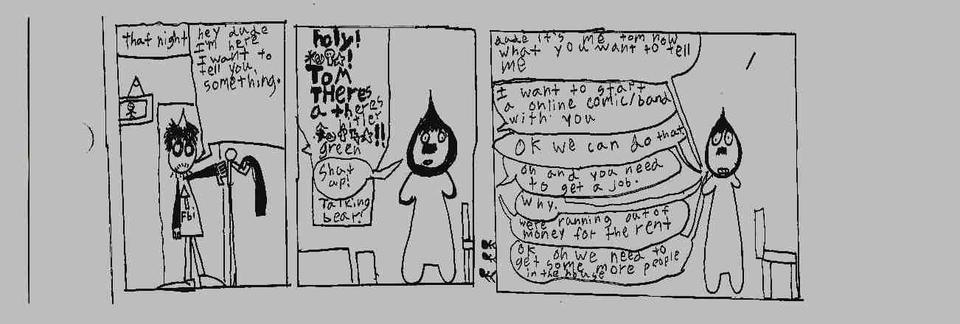 that night
hey dude
I'm here
I want to
tell you
something.
Fbi
holy!
TOM
THeres
a theres
hitler
green
Shut
up!
Talking
bear!
dude it's me tom now
what you want to tell
me
I want to start
a online comic/band
with you
OK we can do that
oh and you need
to get a job.
why.
were running out of
money for the rent
OK oh we need to
get some more people
in the house